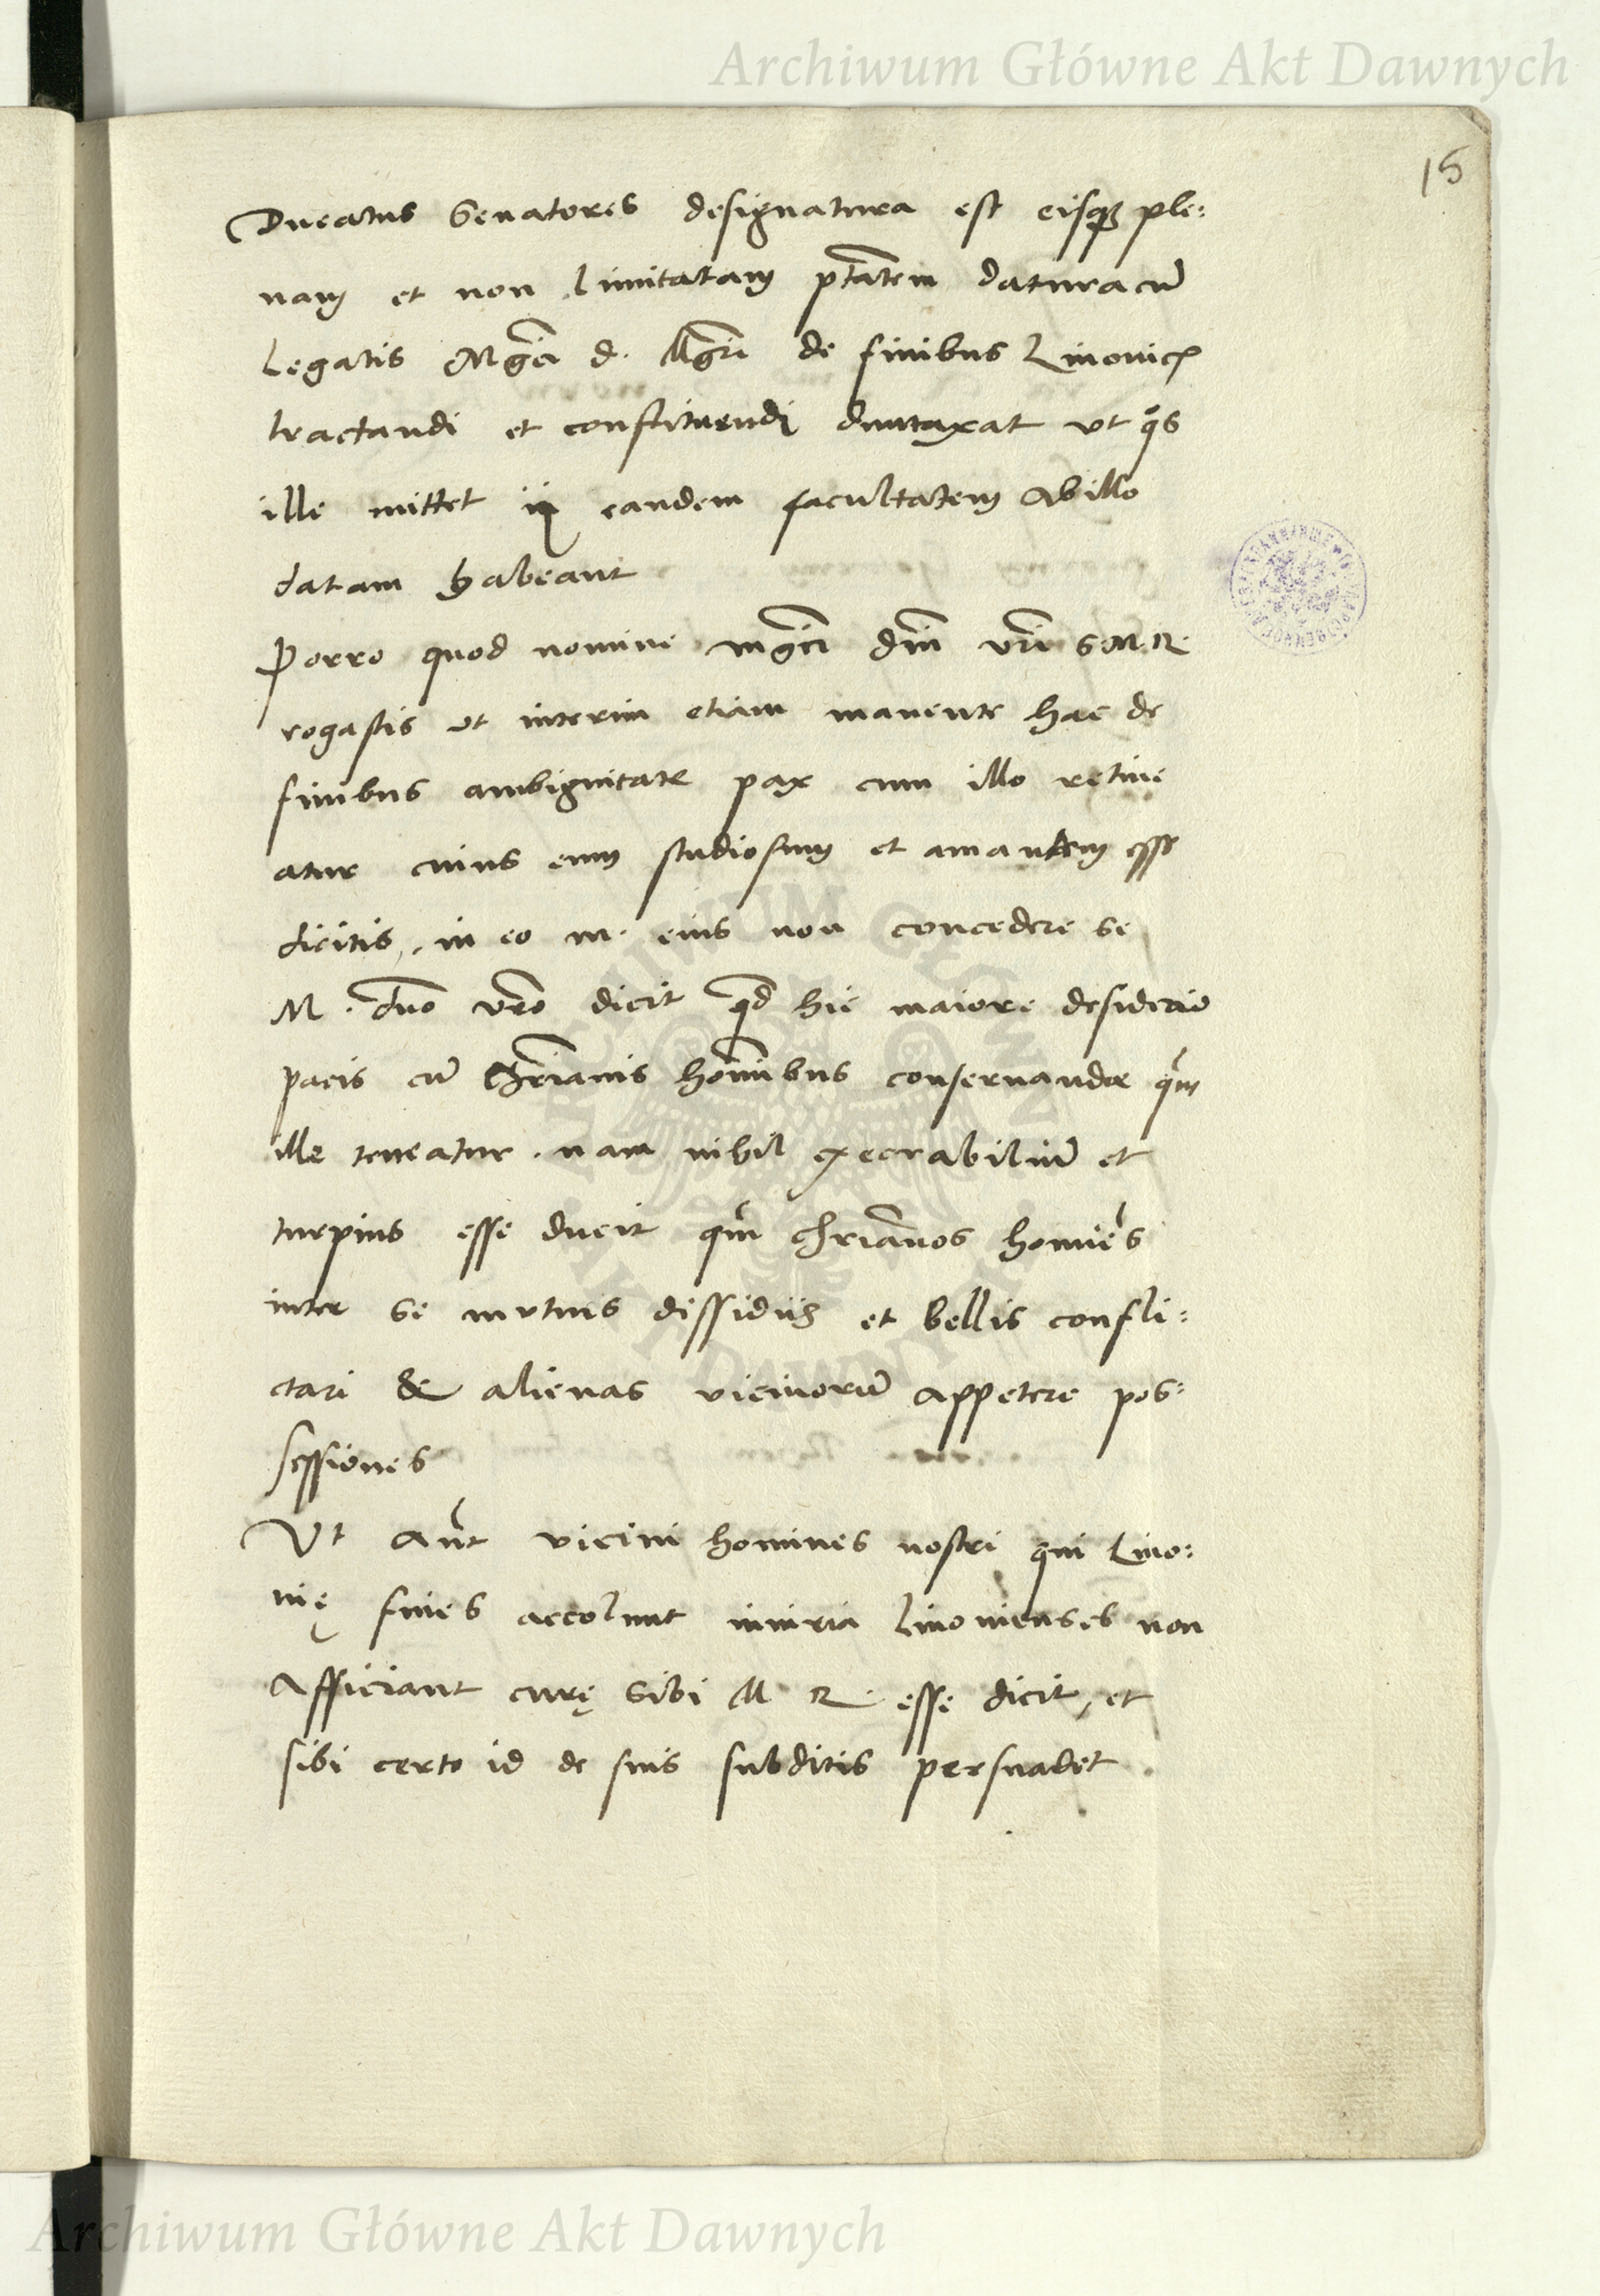 Archiwum Główne Akt Dawnych
15
Ducatus Senatores designatura est eisq3 ple:
nam et non limitatam ptatem datura cu̅
Legatis Mgci d. Mgri de finibus Liuonicis
tractandi et constituendi dumtaxat ut q̊s
ille mittet ij eandem facultatem ab illo
datam habeant
Porro quod nomine mgci dni vri S M. R
rogastis ut interim etiam manente hac de
finibus ambiguitate pax cum illo retine
atur cuius eum studiosum et amantem esse
dicitis, in eo m. eius non concedere se
M. dno vro dicit qd hic maiore desiderio
pacis cu̅ Christianis hominibus conseruandæ qm
ille teneatur. nam nihil execrabiliu̅ et
turpius esse ducit qm chrianos homies
inter se mutuis dissidiis et bellis confli:
ctari & alienas vicinoru̅ appetere pos:
sessiones
Vt aut vicini homines nostri qui Liuo:
nię fines accolunt iniuria Liuonienses non
afficiant curę sibi M R. esse dicit, et
sibi certo id de suis subditis persuadet.
Archiwum Główne Akt Dawnych